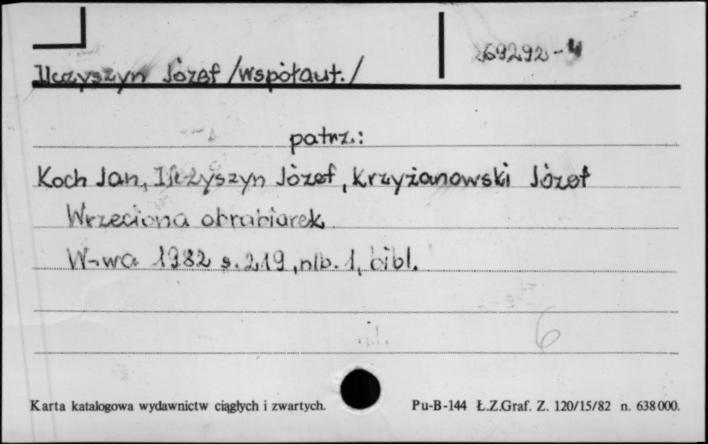 269292-4
Ilczyszyn Józef /współaut./
patrz.:
Koch Jan, Ilczyszyn Józef, Krzyżanowski Józef
Wrzeciona obrabiarek
W-wa 1982 s. 219, nlb. 1, bibl.
6
Karta katalogowa wydawnictw ciągłych i zwartych. Pu-B-144 Ł.Z.Graf. Z. 120/15/82 n. 638000.